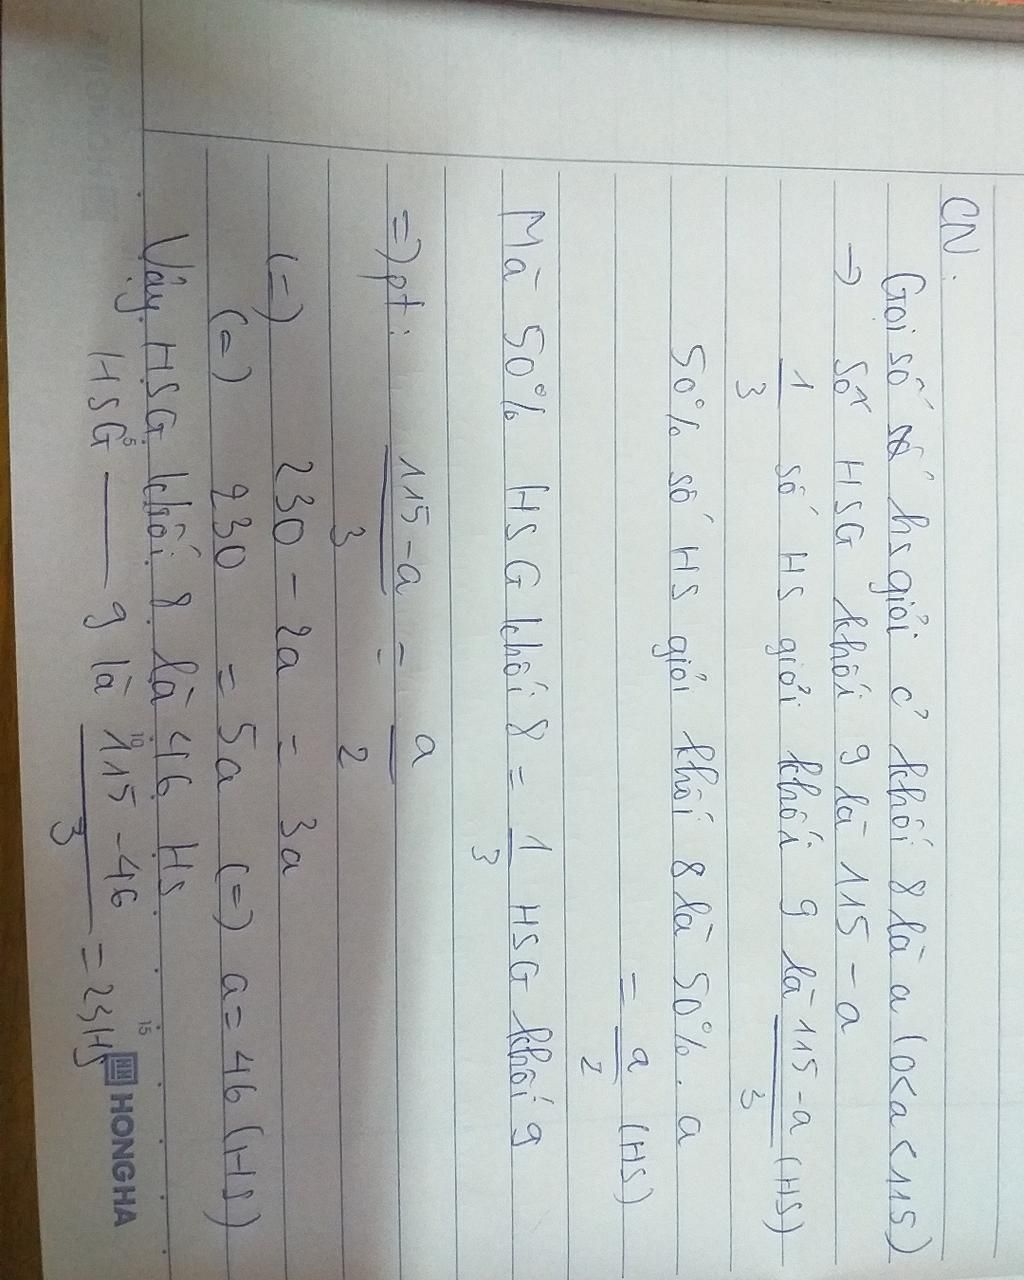 CN:
Gọi số hsgiỏi ở khối 8 là a (0<a<115)
→ Số HSG khối 9 là 115 - a
1/3 số HS giỏi khối 9 là 115-a/3 (HS)
50% số HS giỏi khối 8 là 50%. a
= a/2 (HS)
Mà 50% HSG khối 8 = 1/3 HSG khối 9
=) pt: 115-a/3 = a/2
(=) 230 - 2a = 3a
(=) 230 = 5a (=) a = 46 (HS)
Vậy HSG khối 8 là 46 HS
HSG — 9 là 115-46/3 = 23HS
5 10 15
HONGHA